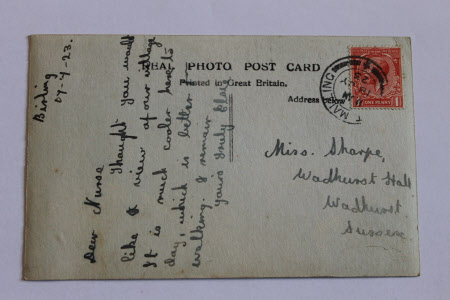 REAL PHOTO POST CARD
Printed in Great Britain.
Address below
MALLING
ONE PENNY
Miss. Sharpe,
Wadhurst Hall
Wadhurst
Sussex
Birling
Dear Nurse
Thought you would
like a view of our village
It is much cooler here to
day, which is better for
walking. I remain
yours truly